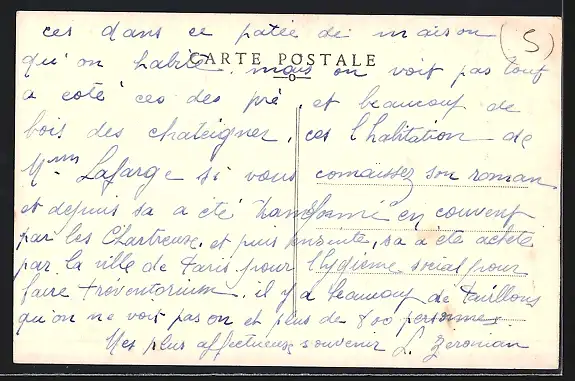 ces dans ce patée de maison (5)
CARTE POSTALE
qu'on habite, mais on voit pas tout
a coté ces des pré, et beaucoup de
bois des chateignes, ces l'habitation de
Mme Lafarge si vous connaissez son roman
et depuis sa a été transformé en couvent
par les Chartreuse, et puis ensuite, sa a été acheté
par la ville de Paris pour l'hygième social pour
faire Préventorium, il y a beaucoup de Paillons
qu'on ne voit pas on et plus de 800 personnes
Mes plus affectueuse souvenir L. Zeronian